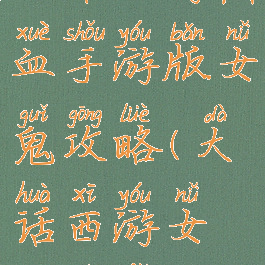 xuè shǒu yóu bǎn nǚ
血手游版女
guǐ gōng lüè dà
鬼攻略(大
huà xī yóu nǚ
话西游女